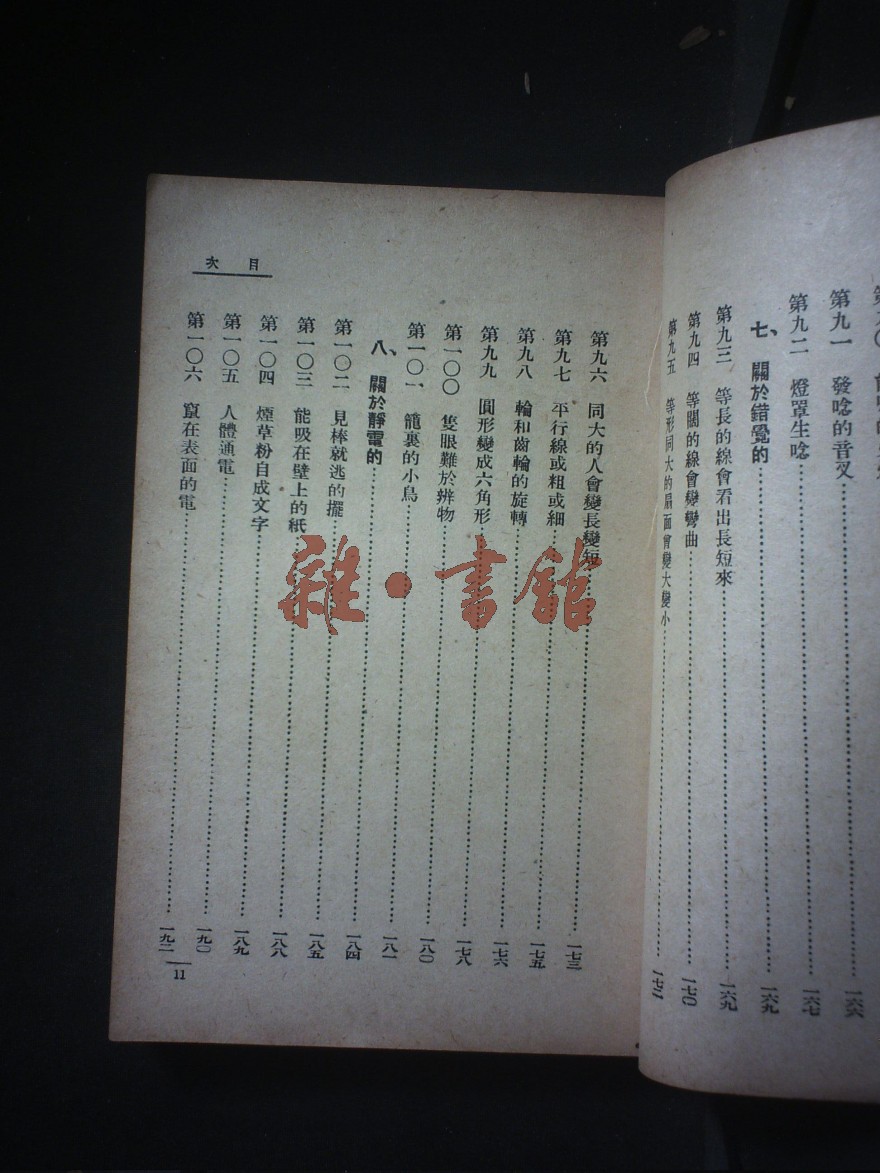 第九一　發唸的音叉……一六六
第九二　燈罩生唸……一六七
七、關於錯覺的……一六九
第九三　等長的線會看出長短來……一六九
第九四　等闊的線會變彎曲……一七〇
第九五　等形同大的扇面會變大變小……一七二
目次
第九六　同大的人會變長變短……一七三
第九七　平行線或粗或細……一七五
第九八　輪和齒輪的旋轉……一七六
第九九　圓形變成六角形……一七八
第一〇〇　隻眼難於辨物……一八〇
第一〇一　籠裏的小鳥……一八一
八、關於靜電的
第一〇二　見棒就逃的擺……一八四
第一〇三　能吸在壁上的紙……一八五
第一〇四　煙草粉自成文字……一八八
第一〇五　人體通電……一八九
第一〇六　竄在表面的電……一九〇
一九二
11
雜·書館